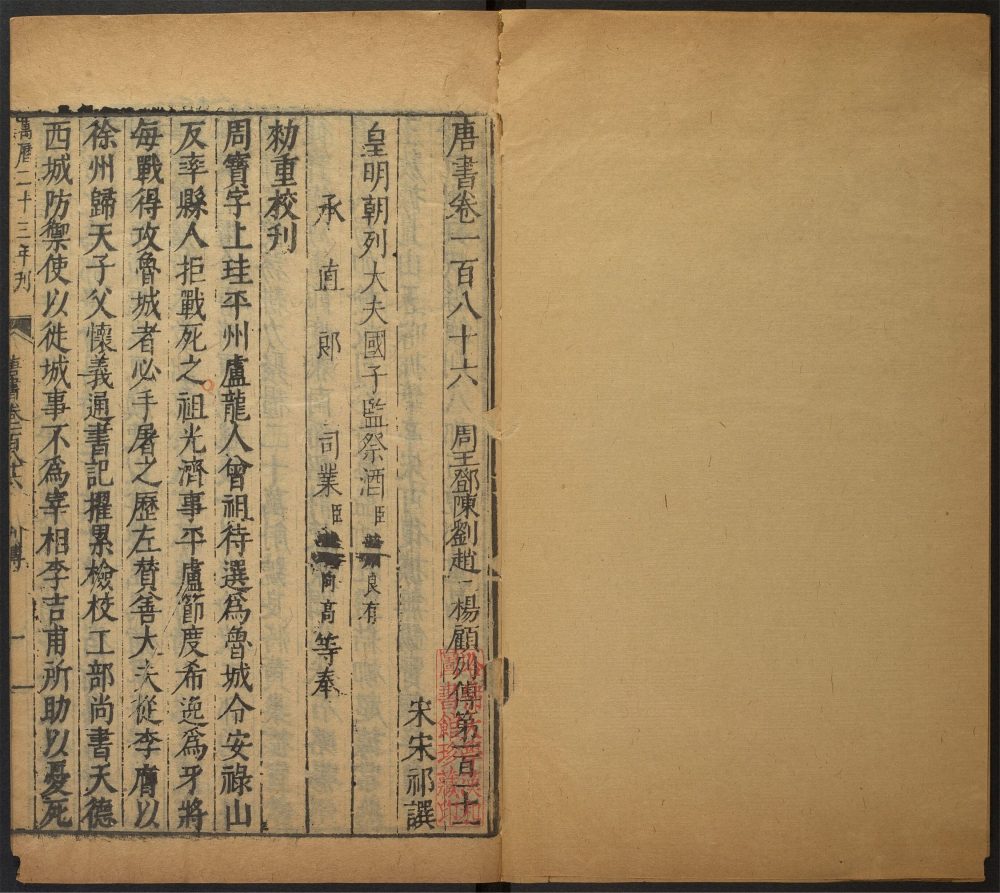 唐書卷一百八十六 周王鄧陳劉趙二楊顧列傳第一百十一
宋宋祁譔
皇明朝列大夫國子監祭酒臣蕭良有
承直郎司業臣葉向高等奉
勑重校刋
周寶字上珪平州盧龍人曾祖待選爲魯城令安祿山
反率縣人拒戰死之祖光濟事平盧節度希逸爲牙將
每戰得攻魯城者必手屠之歷左賛善大夫從李膺以
徐州歸天子父懷義通書記擢累檢校工部尚書天德
西城防禦使以徙城事不爲宰相李吉甫所助以憂死
萬曆二十三年刋
唐書卷一百八十六 列傳
一